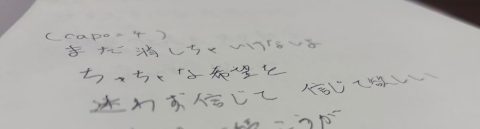 (capo=4)
まだ消しちゃいけないよ
ちっちゃな希望を
迷わず信じて 信じて欲しい